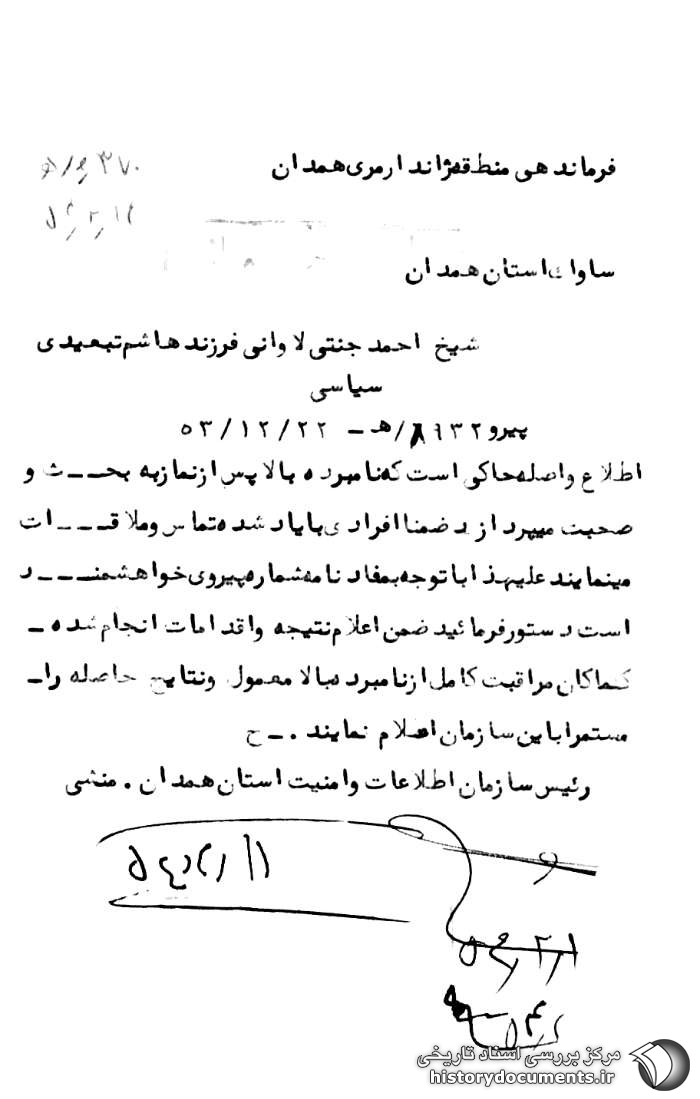 فرماندهی منطقه ژاندارمری همدان
ساواک استان همدان
شیخ احمد جنتی لاوانی فرزند هاشم تبعیدی
سیاسی
پیرو ۸۹۳۲/هـ ـ ۵۳/۱۲/۲۲
اطلاع واصله حاکی است که نامبرده بالا پس از نماز به بحـــث و
صحبت میپردازد ضمنا افرادی با یاد شده تماس و ملاقـــات
مینمایند علیهذا با توجه بمفاد نامه شماره پیروی خواهشمنــد
است دستور فرمائید ضمن اعلام نتیجه و اقدامات انجام شده ـ
کماکان مراقبت کامل از نامبرده بالا معمول و نتایج حاصله را ـ
مستمرا باین سازمان اعلام نمایند . ـ ح
رئیس سازمان اطلاعات و امنیت استان همدان . منشی
مرکز بررسی اسناد تاریخی
historydocuments.ir